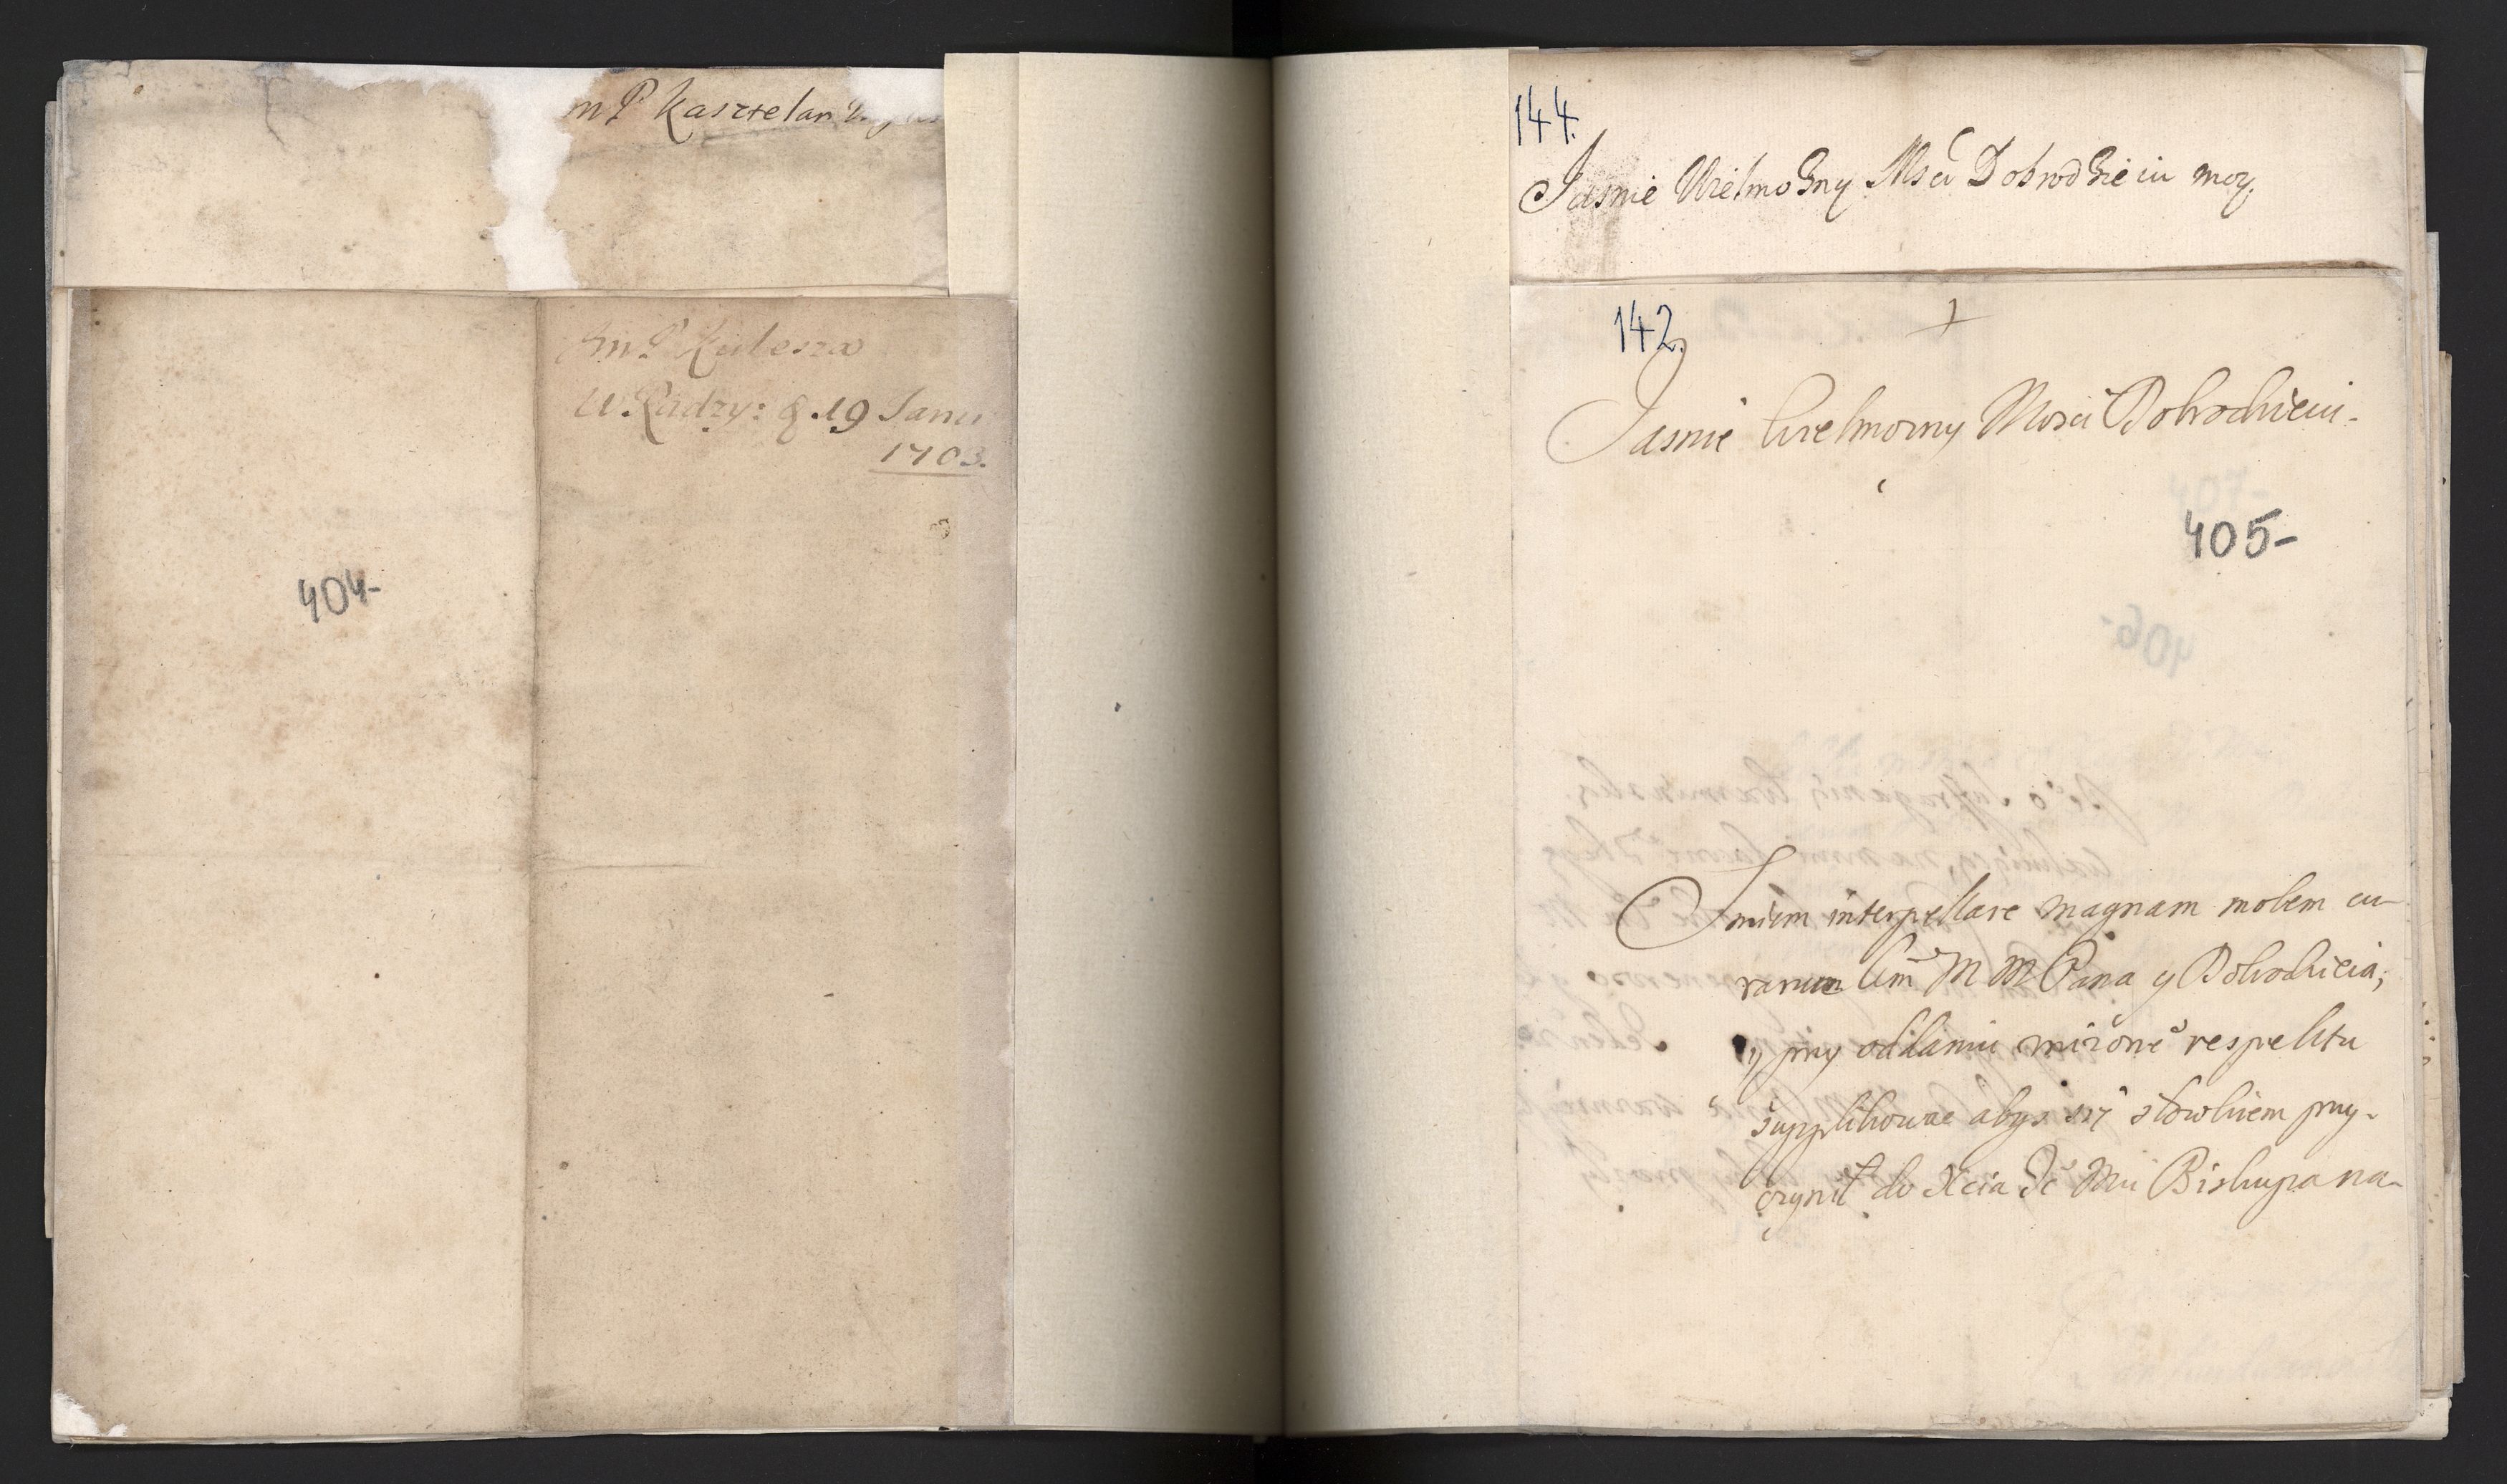 mP Kasztelan
JmP Kulesza
W Radzy: d. 19 Janu
1703.
404-
144.
Jasnie Wielmożny Mści Dobrodzieiu moy.
142.
Jasnie Wielmozny Mosci Dobrodzieiu
405-
406-
Smiem interpellare magnam molem cu-
rarum Wm M M Pana y Dobrodzieia;
y przy oddaniu respektu
supplikowac abys się słowkiem przy-
czynił do Xcia Je Mci Biskupa na-